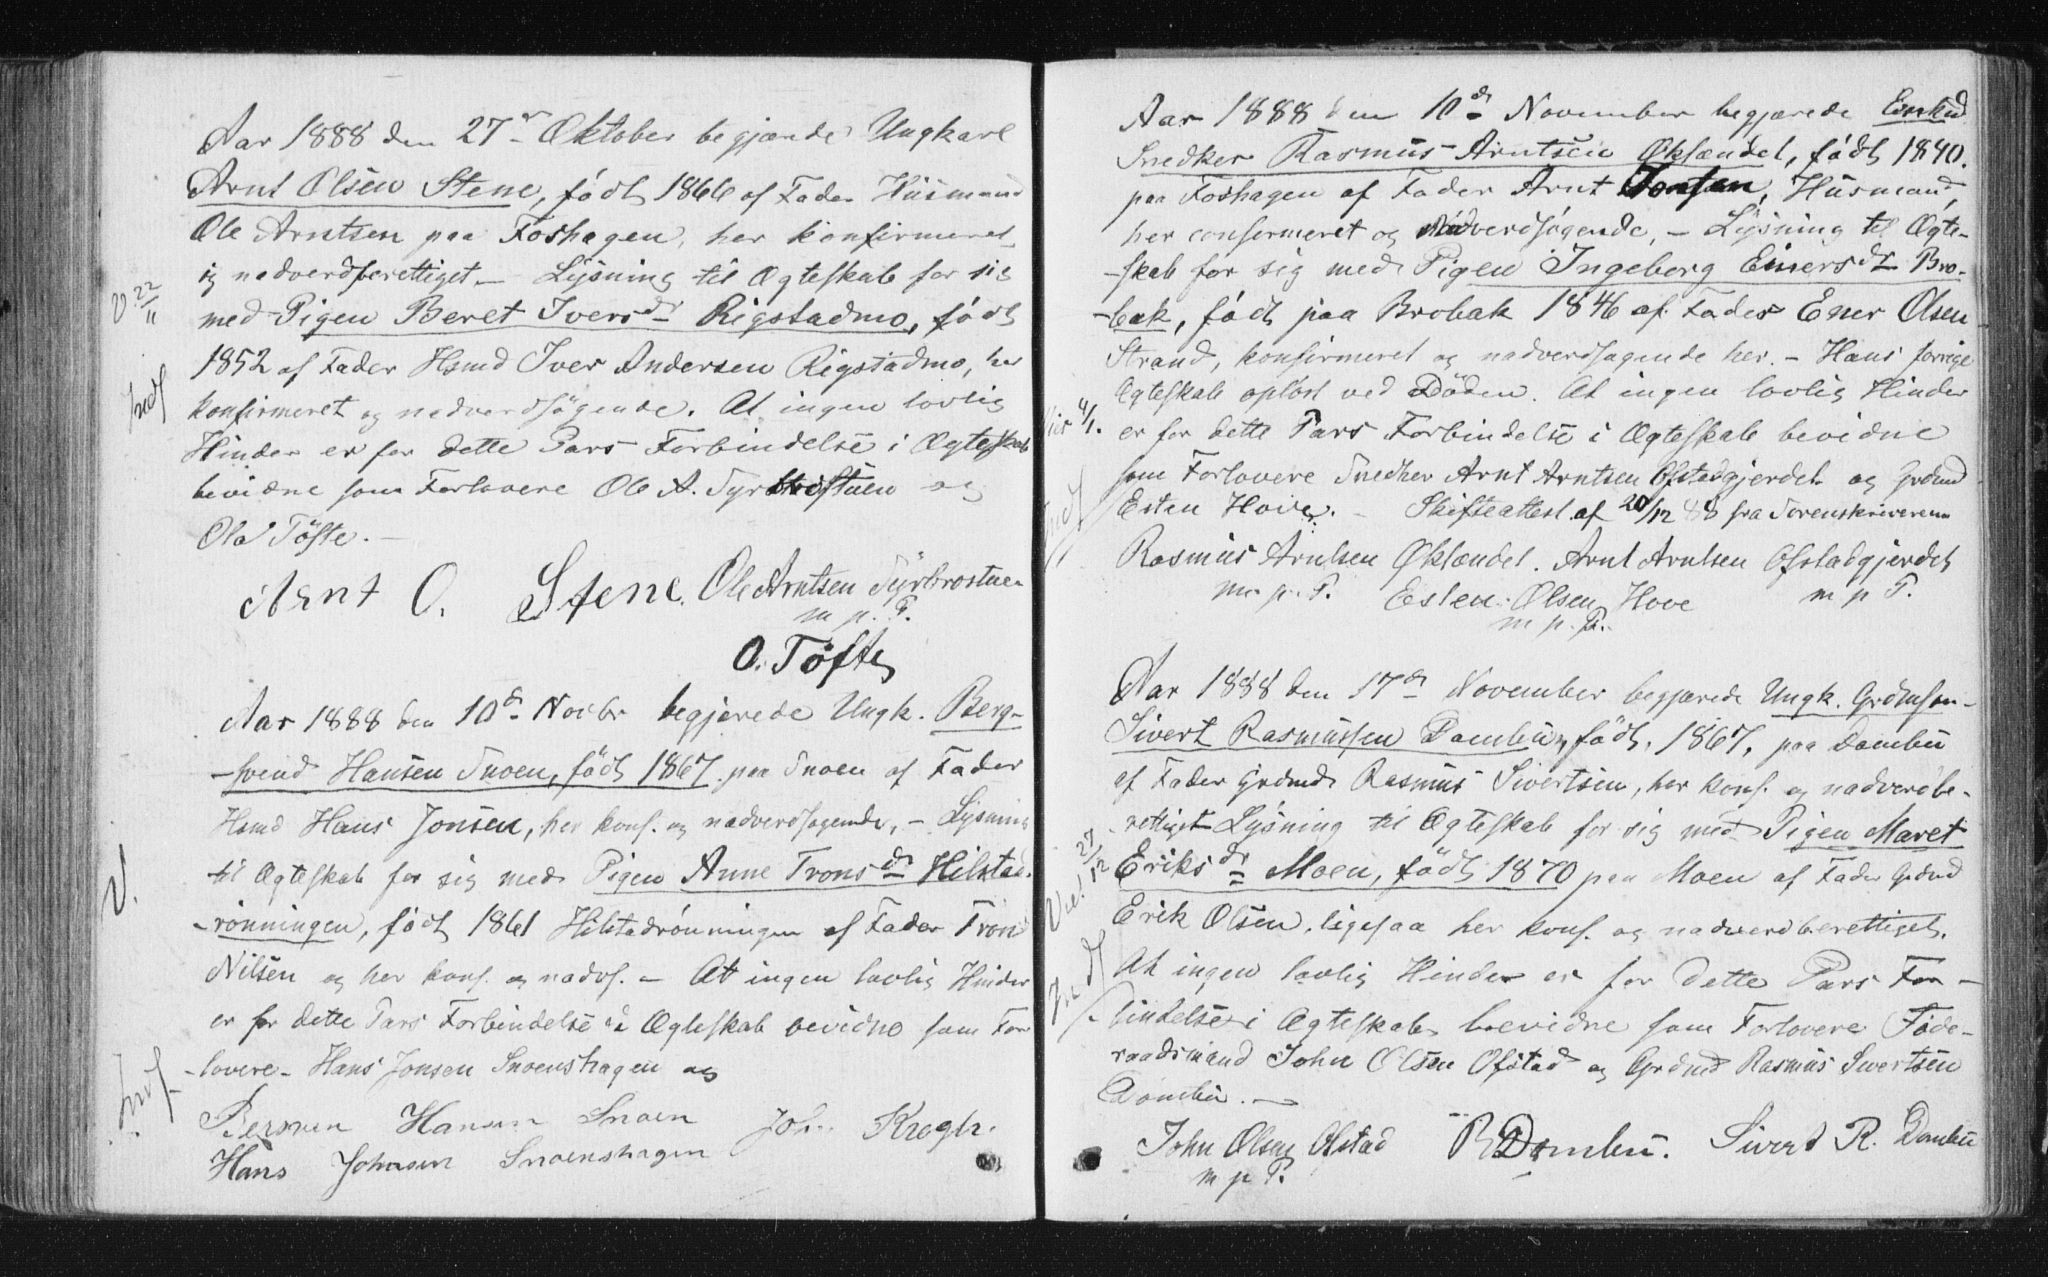 Aar 1888 den 27de Oktober begjærede Ungkarl
Arnt Olsen Stene, født 1866 af Fader Husmand
Ole Arntsen paa Foshagen, her konfirmeret
og nadverdberettiget – Lysning til Ægteskab for sig
V. 22/11
med Pigen Beret Iversdr Rigstadmo, født
1852 af Fader Hsmd Iver Andersen Rigstadmo, her
Indf
konfirmeret og nadverdsøgende. At ingen lovlig
Hinder er for dette Pars Forbindelse i Ægteskab
bevidne som Forlovere Ole A. Tyrbrostuen og
Ola Tøfte. –
Arnt O. Stene. Ole Arntsen Tyrbrostuen
m. p. P.
O. Tøfte
Aar 1888 den 10de Novbr begjærede Ungk. Berg-
-svend Hansen Snoen, født 1867 paa Snoen af Fader
Hsmd Hans Jonsen, her konf. og nadverdsøgende, – Lysning
til Ægteskab for sig med Pigen Anne Tronsdr Hilstad-
V.
-rønningen, født 1861 Hilstadrønningen af Fader Trond
Nilsen og her konf. og nadvs. – At ingen lovlig Hinder
er for dette Pars Forbindelse i Ægteskab bevidne som For
-lovere – Hans Jonsen Snoenshagen og
Indf.
Bersven Hansen Snoen John Krogh.
Hans Johnsen Snoenshagen
Aar 1888 den 10de November begjærede Enkem
Snedker Rasmus Arntsen Øklændet, født 1840.
paa Foshagen af Fader Arnt Jonsen, Husmand,
her confermeret og nadverdsøgende, – Lysning til Ægte-
-skab for sig med Pigen Ingeborg Einersdr Bro-
-bak, født paa Brobak 1846 af Fader Ener Olsen
Strand, konfirmeret og nadverdsøgende her. – Hans forrige
Ægteskab opløst ved Døden. At ingen lovlig Hinder
Vier 4/1.
er for dette Pars Forbindelse i Ægteskab bevidne
som Forlovere Snedker Arnt Arntsen Ofstadgjerdet og Grdmd
Indf
Esten Hove. – Skifteattest af 20/12 88 fra Sorenskriveren
Rasmus Arntsen Øklændet. Arnt Arntsen Ofstadgjerdet
m. p. P. Esten Olsen Hove m p P.
m p. P.
Aar 1888 den 17de November begjærede Ungk. Grdmsøn
Sivert Rasmussen Dombu, født, 1867, paa Dombu
af Fader Grdmd Rasmus Sivertsen, her konf. og nadverdbe-
-rettiget Lysning til Ægteskab for sig med Pigen Maret
Vied. 27/12
Eriksdr Moen, født 1870 paa Moen af Fader Grdmd
Erik Olsen, ligesaa her konf. og nadverdberettiget.
At ingen lovlig Hinder er for dette Pars For-
Indf
bindelse i Ægteskab bevidne som Forlovere Føde-
raadsmand John Olsen Ofstad og Grdmd Rasmus Sivertsen
Dombu. –
John Olsen Ofstad R Dombu. Sivert R. Dombu
m p P.